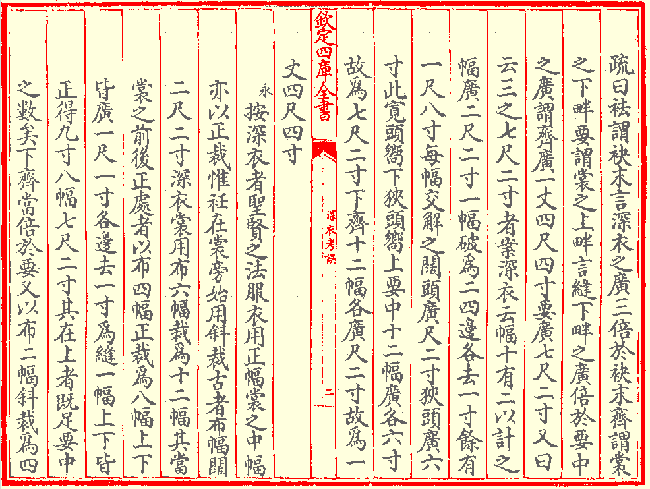 疏曰袪謂袂末言深衣之廣三倍於袂末齊謂裳
之下畔要謂裳之上畔言縫下畔之廣倍於要中
之廣謂齊廣一丈四尺四寸要廣七尺二寸又曰
云三之七尺二寸者案深衣云幅十有二以計之
幅廣二尺二寸一幅破爲二四邊各去一寸餘有
一尺八寸每幅交解之闊頭廣尺二寸狹頭廣六
寸此寛頭嚮下狹頭嚮上要中十二幅廣各六寸
故爲七尺二寸下齊十二幅各廣尺二寸故爲一
欽定四庫全書
深衣考誤
二
丈四尺四寸
永按深衣者聖賢之法服衣用正幅裳之中幅
亦以正裁惟衽在裳旁始用斜裁古者布幅闊
二尺二寸深衣裳用布六幅裁爲十二幅其當
裳之前後正處者以布四幅正裁爲八幅上下
皆廣一尺一寸各邊去一寸爲縫一幅上下皆
正得九寸八幅七尺二寸其在上者既足要中
之數矣下齊當倍於要又以布二幅斜裁爲四